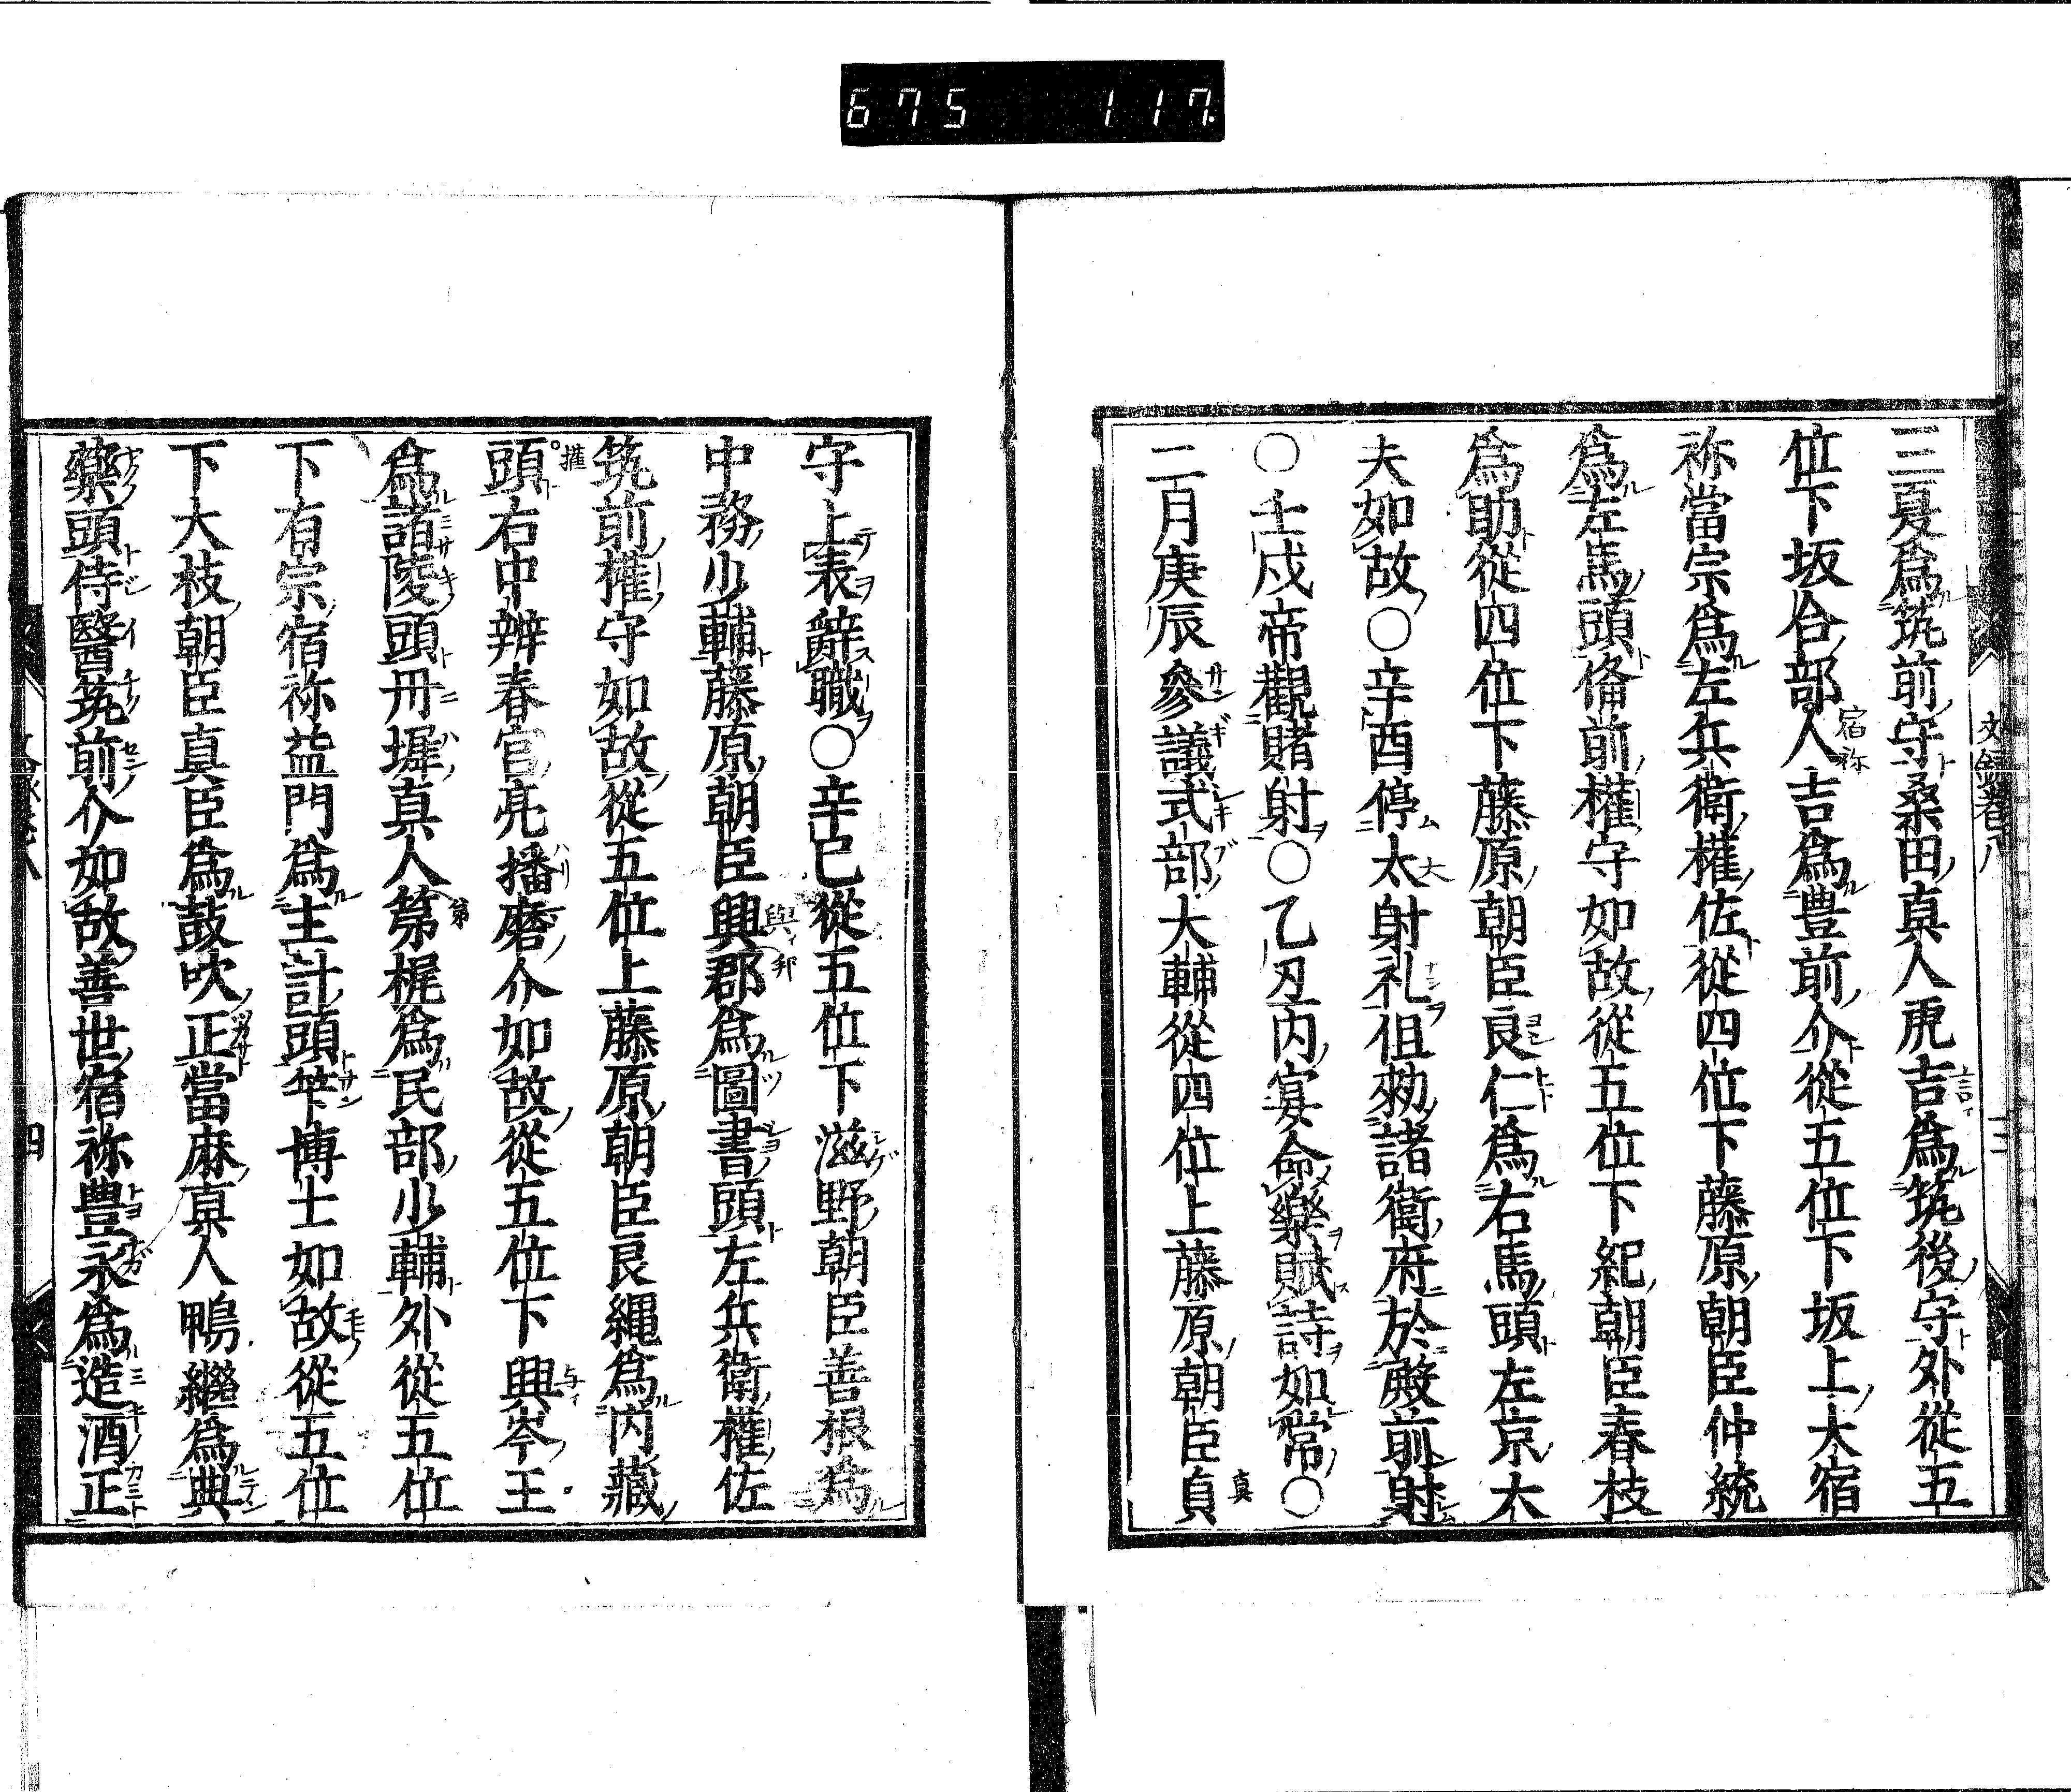 675 117
文録卷八
三
三夏爲筑前守桑田真人虎吉爲筑後守外從五
位下坂合部人吉爲豊前介從五位下坂上大宿
祢當宗爲左兵衛權佐從四位下藤原朝臣仲統
爲左馬頭俻前權守如故從五位下紀朝臣春枝
爲助從四位下藤原朝臣良仁爲右馬頭左京大
夫如故○辛酉停太射礼但勑諸衛府於殿前射
○壬戌帝觀賭射○乙丑内宴命樂賦詩如常○
二月庚辰參議式部大輔從四位上藤原朝臣貞
守上表辭職○辛巳從五位下滋野朝臣善根爲
中務少輔藤原朝臣興郡爲圖書頭左兵衛權佐
筑前權守如故從五位上藤原朝臣良縄爲内藏
頭右中辨春宫亮播磨介如故從五位下興岑王
爲諸陵頭丹墀真人第梶爲民部少輔外從五位
下有宗宿祢益門爲主計頭竿博士如故從五位
下大枝朝臣真臣爲鼓吹正當麻真人鴨繼爲典
藥頭侍醫筑前介如故善世宿祢豊永爲造酒正
四